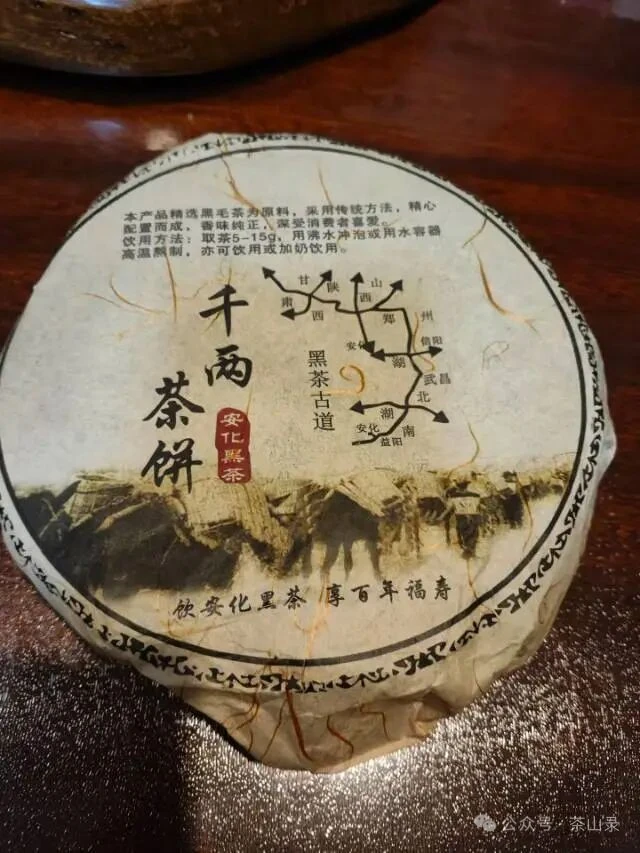 本产品精选黑毛茶为原料，采用传统方法，精心
配置而成，香味纯正，深受消费者喜爱。
饮用方法：取茶5-15g，用沸水冲泡或用水容器
高温熬制，亦可饮用或加奶饮用。
千两
茶饼
安化黑茶
黑茶古道
甘肃
陕西
山西
郑州
安化
信阳
湖北
武昌
湖南
安化
益阳
饮安化黑茶 享百年福寿
公众号·茶山录